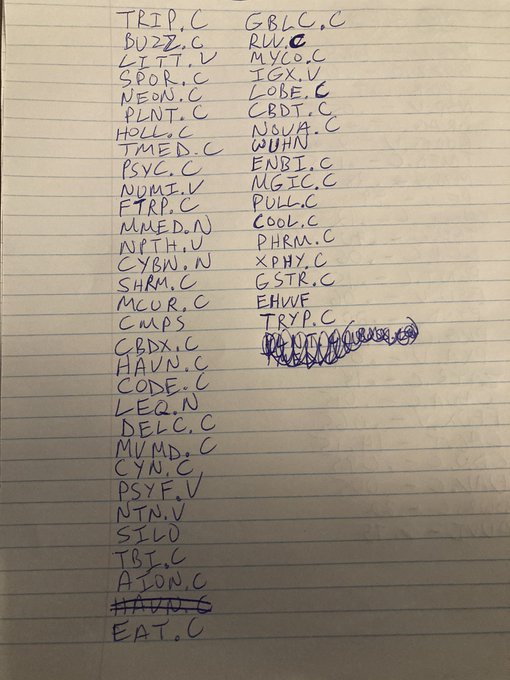 TRIP.C
BUZZ.C
LITT.V
SPOR.C
NEON.C
PLNT.C
HOLL.C
TMED.C
PSYC.C
NUMI.V
FTRP.C
MMED.N
NPTH.V
CYBN.N
SHRM.C
MCUR.C
CMPS
CBDX.C
HAVN.C
CODE.C
LEQ.N
DELC.C
MVMD.C
CYN.C
PSYF.V
NTN.V
SILO
TBI.C
AION.C
HAVN.C
EAT.C
GBLC.C
RW.C
MYCO.C
IGX.V
LOBE.C
CBDT.C
NOVA.C
WUHN
ENBI.C
MGIC.C
PULL.C
COOL.C
PHRM.C
XPHY.C
GSTR.C
EHVVF
TRYP.C